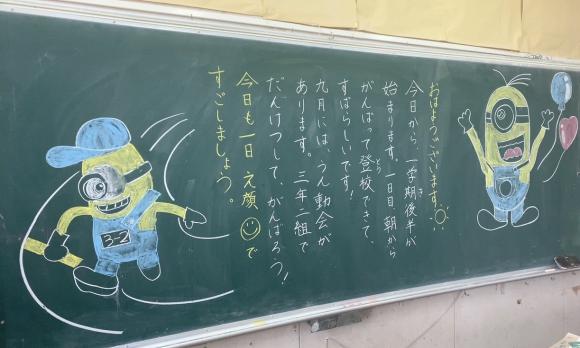 おはようございます。
今日から、一学期後半が
始まります。一日目、朝から
がんばって登校できて、
すばらしいです!
九月には、うん動会が
あります。三年二組で
だんけつして、がんばろう!
今日も一日 え顔 で
すごしましょう。
3-2